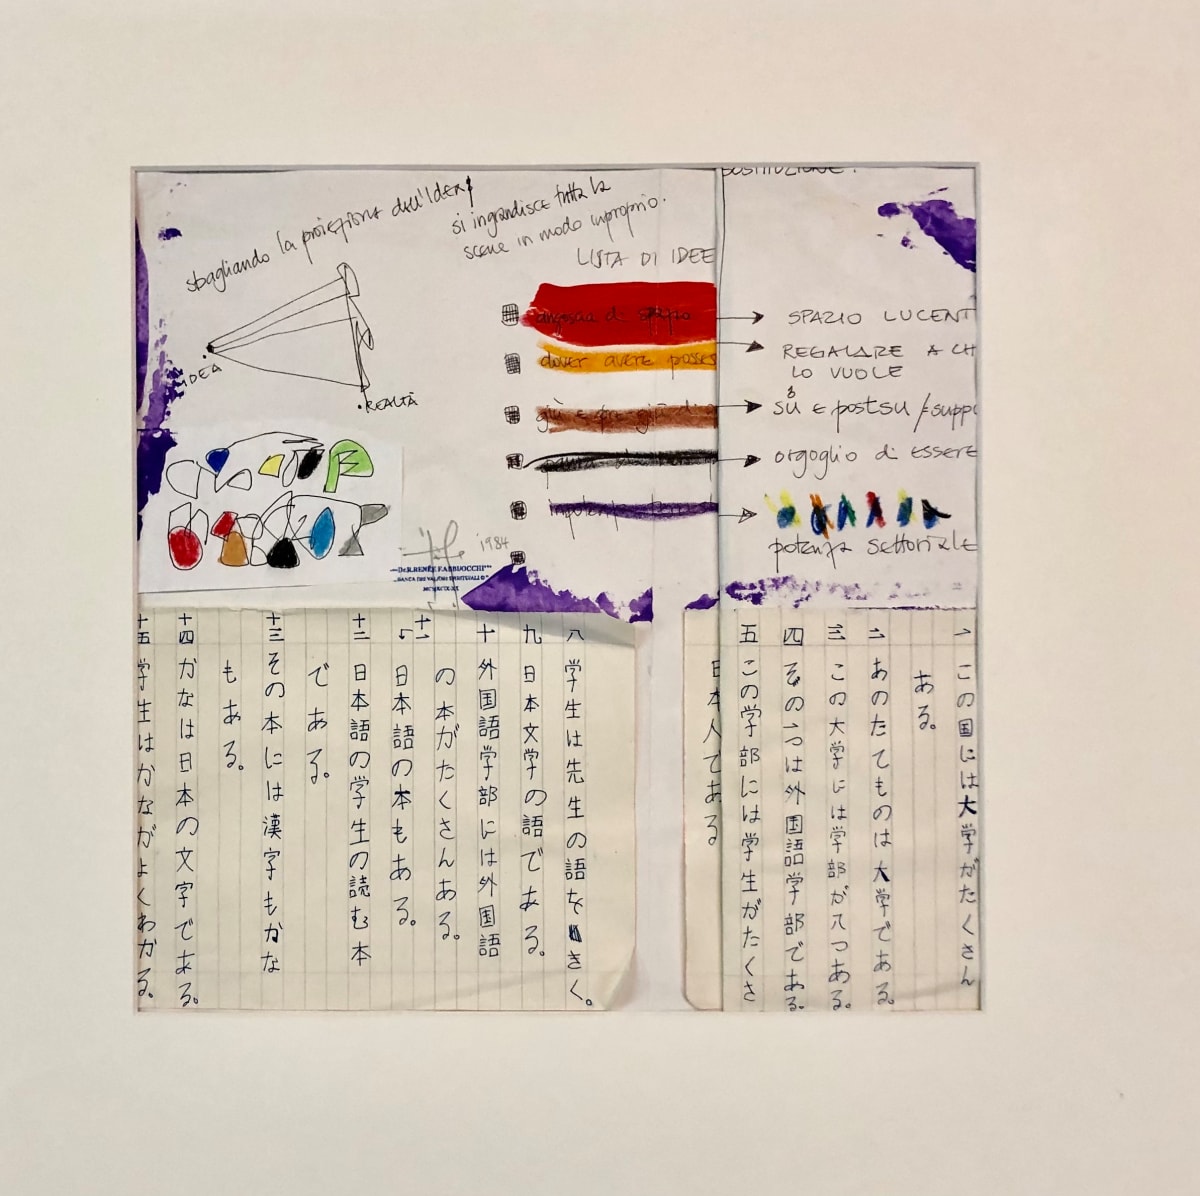 sbagliando la proiezione dell'IDEA
si ingrandisce tutta la
scene in modo improprio.
LISTA DI IDEE
IDEA
REALTÀ
angoscia di
dover avere posses
giù e
SOSTITUZIONE:
SPAZIO LUCENT
REGALARE A CH
LO VUOLE
su e post su / suppo
orgoglio di essere
potenza settoriale
1984
Dr. RENÉE FABBUOCCHI
BANCA DEI VALORI SPIRITUALI ©
一 この国には大学がたくさん
ある。
二 あのたてものは大学である。
三 この大学には学部が八つある。
四 その一つは外国語学部である。
五 この学部には学生がたくさ
日本人である
八 学生は先生の語をきく。
九 日本文学の語である。
十 外国語学部には外国語
の本がたくさんある。
十一 日本語の本もある。
十二 日本語の学生の読む本
である。
十三 その本には漢字もかな
もある。
十四 かなは日本の文字である。
十五 学生はかながよくわかる。